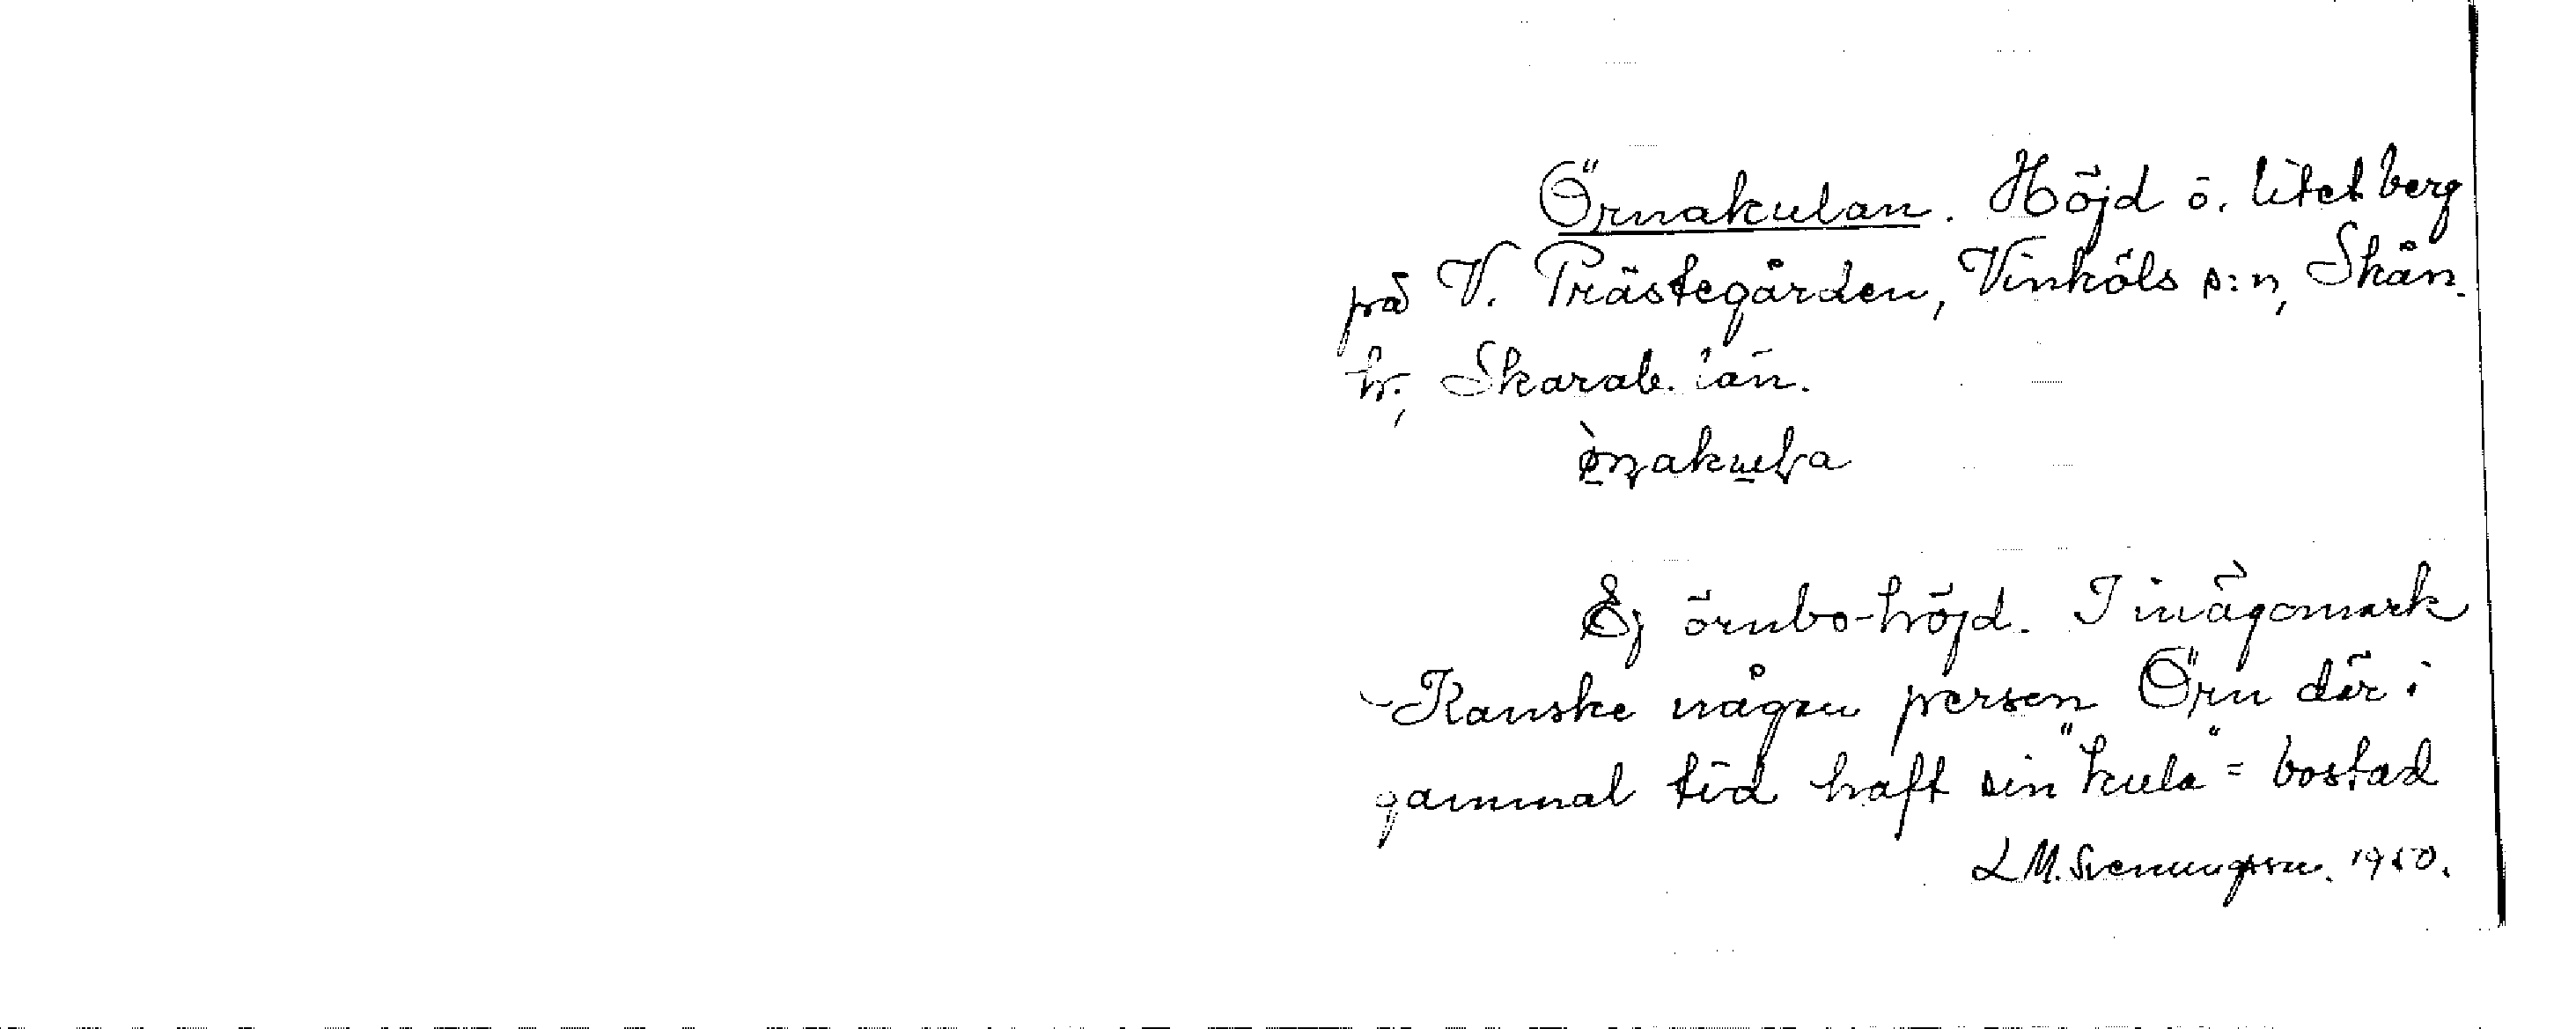 Örnakulan. Höjd o. litet berg
på V. Prästegården, Vinköls s:n, Skån.
hr., Skarab. län.
Ej örnbo-höjd. I inägomark
Kanske någon person Örn där i
gammal tid haft sin "kula" = bostad
L M. Svenungsson. 1950.